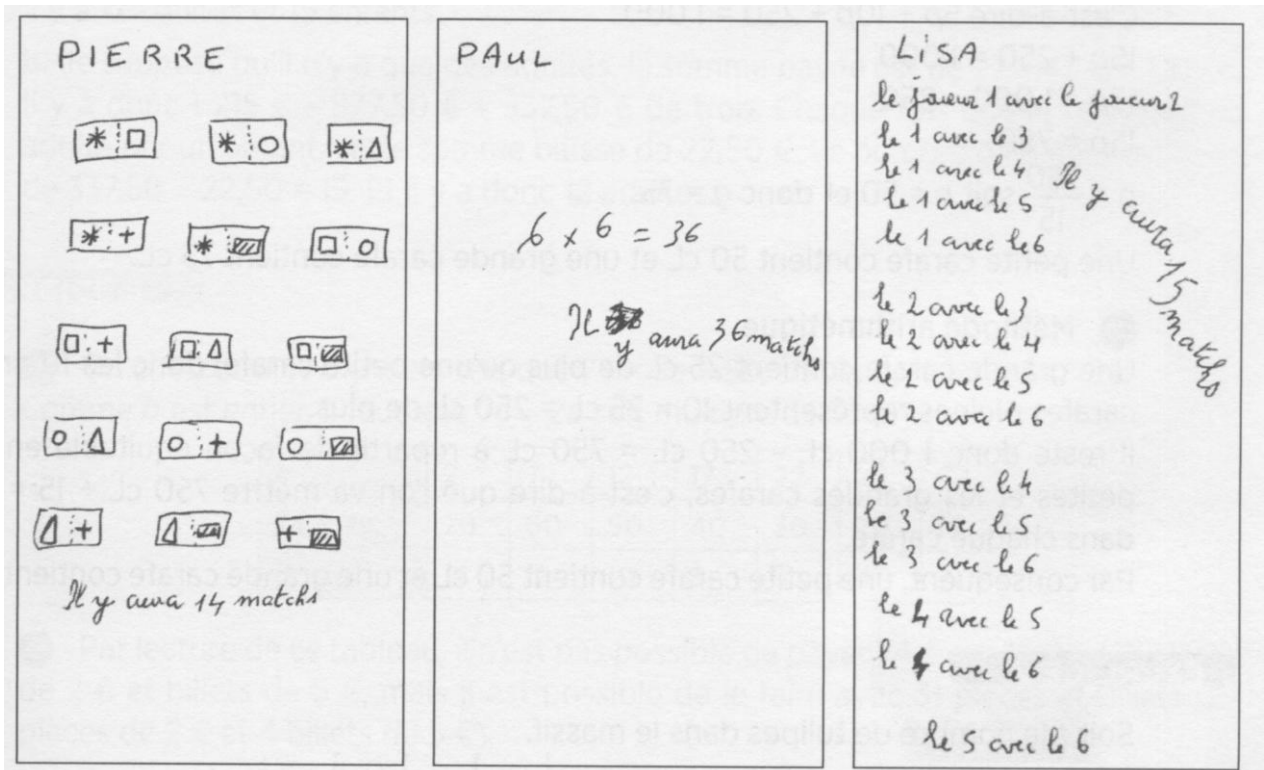 PIERRE
Il y aura 14 matchs
PAUL
6 x 6 = 36
Il y aura 36 matchs
LISA
le joueur 1 avec le joueur 2
le 1 avec le 3
le 1 avec le 4
le 1 avec le 5
le 1 avec le 6
le 2 avec le 3
le 2 avec le 4
le 2 avec le 5
le 2 avec le 6
le 3 avec le 4
le 3 avec le 5
le 3 avec le 6
le 4 avec le 5
le 4 avec le 6
le 5 avec le 6
Il y aura 15 matchs